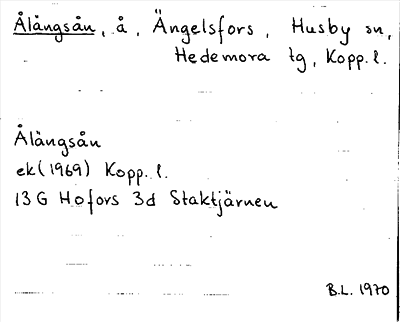 Ålångsån, å, Ängelsfors, Husby sn,
Hedemora tg, Kopp. l.
Ålångsån
ek (1969) Kopp. l.
13 G Hofors 3d Staktjärnen
B.L. 1970